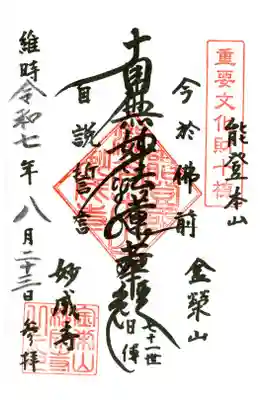 重要文化財十棟
能登本山
金榮山
今於佛前
南無妙法蓮華経
七十一世
自説誓言
維時令和七年八月二十三日参拝
妙成寺